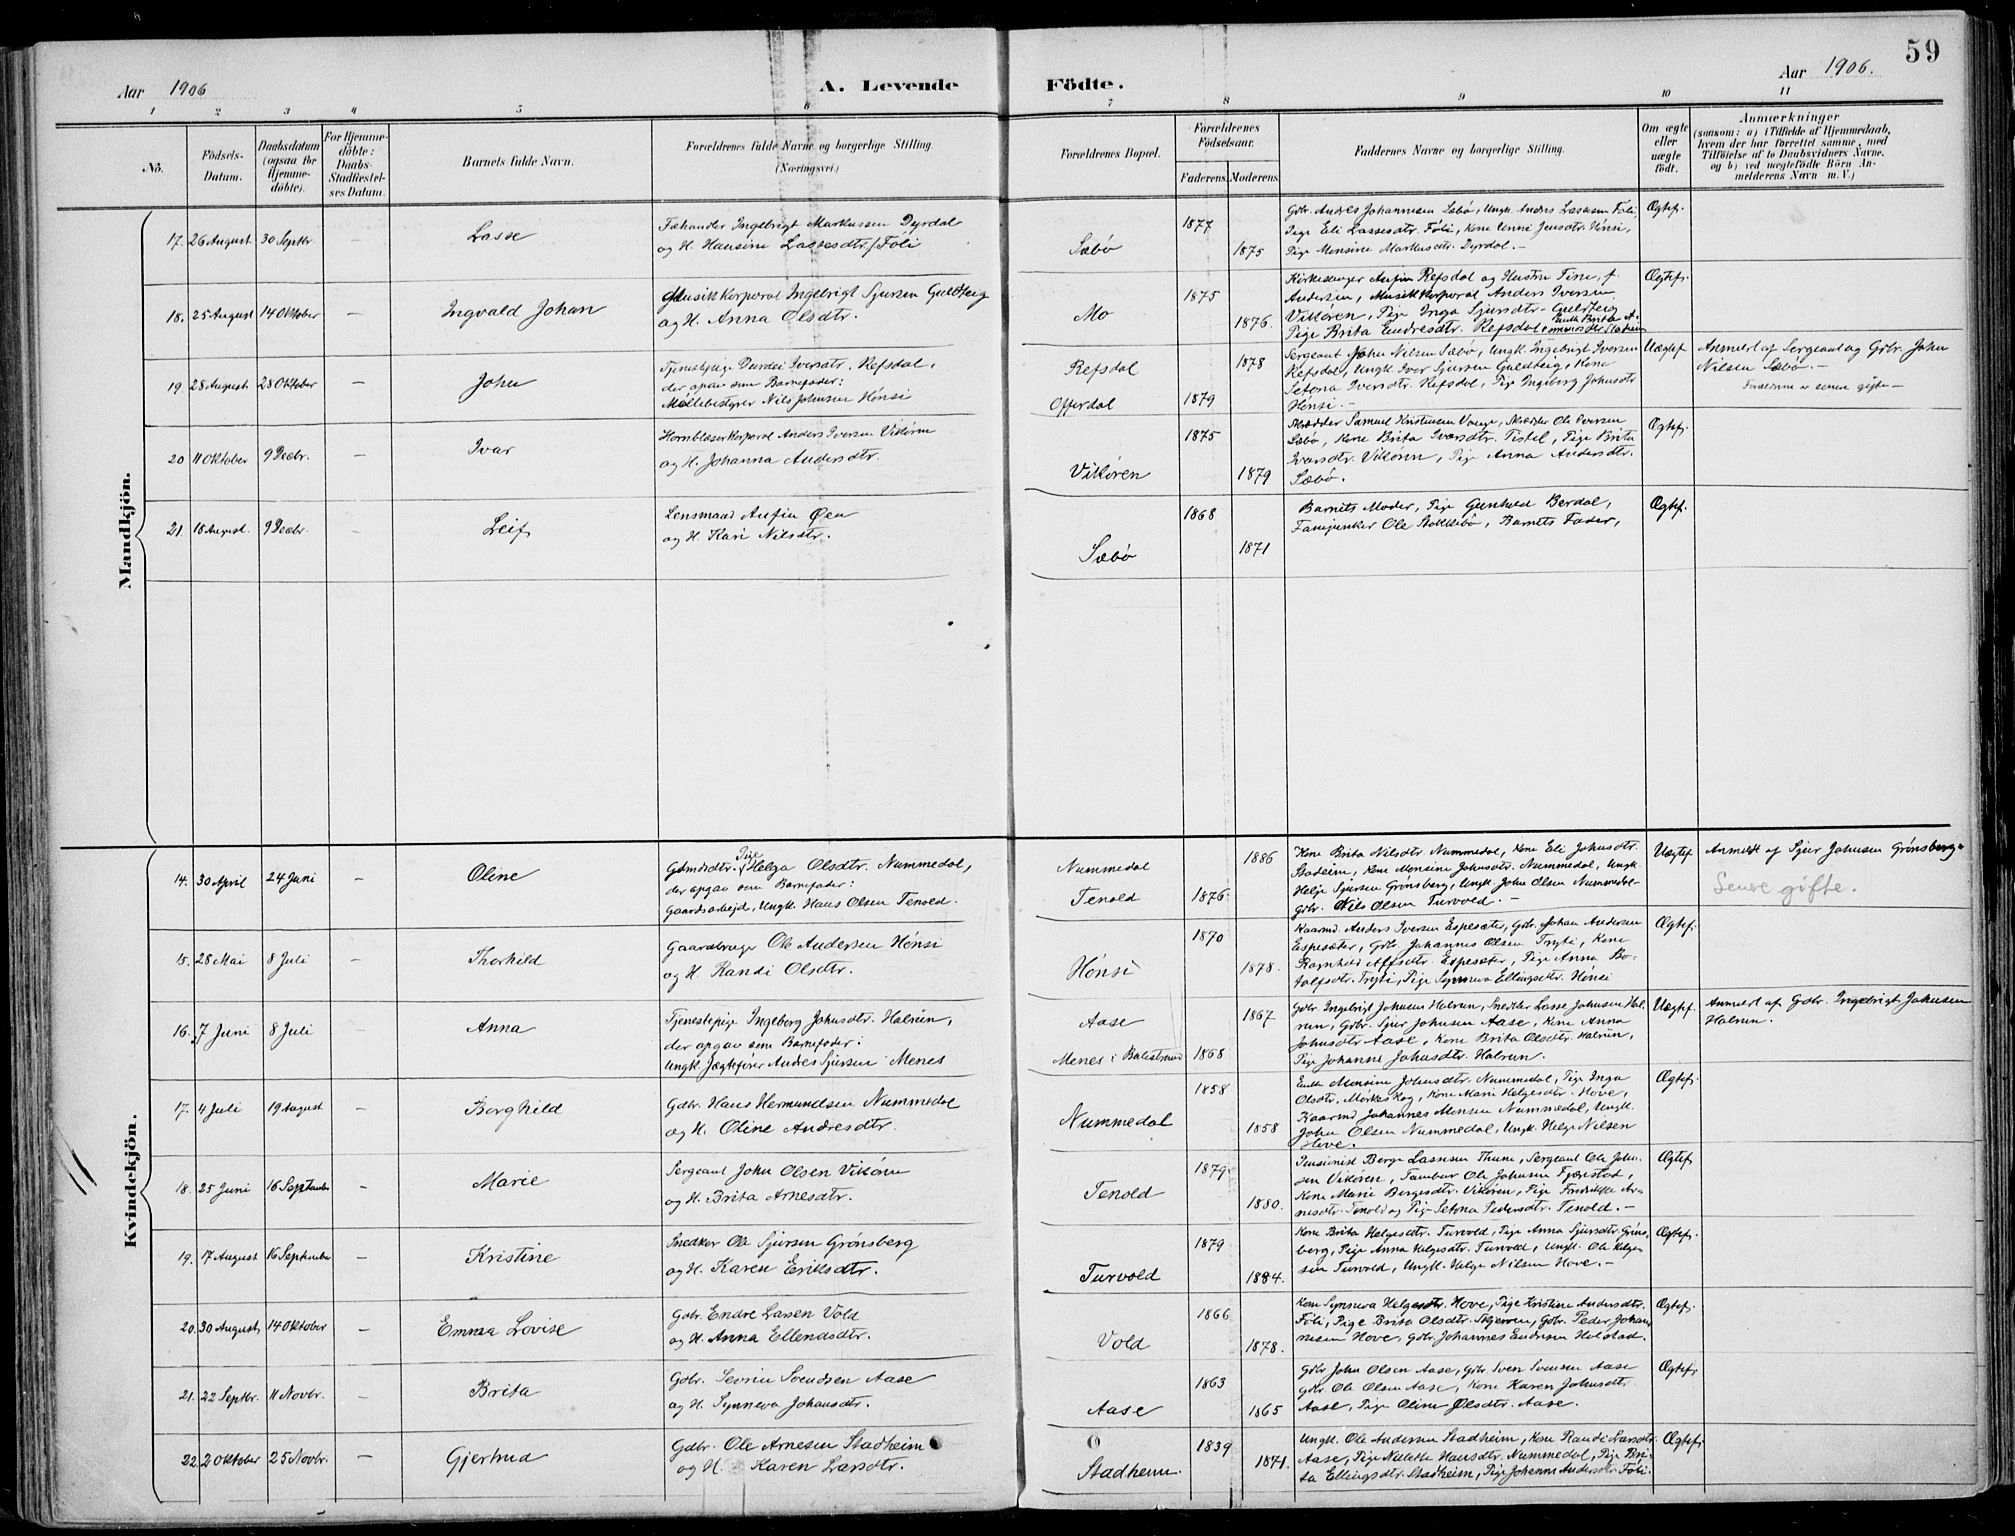 59
Aar 1906
A. Levende
Födte.
Aar 1906.
1 2 3 4 5 6 7 8 9 10 11
No.
Födsels-Datum.
Daabsdatum (ogsaa for Hjemmedöbte).
For Hjemmedöbte: Daabs-Stadfæstelses Datum.
Barnets fulde Navn.
Forældrenes fulde Navne og borgerlige Stilling. (Næringsvei.)
Forældrenes Bopæl.
Forældrenes Födselsaar.
Faderens. Moderens.
Faddernes Navne og borgerlige Stilling.
Om ægte eller uægte födt.
Anmærkninger
(saasom: a) i Tilfælde af Hjemmedaab, hvem der har forrettet samme, med Tilföielse af to Daabsvidners Navne. og b) ved uægtefödte Börn Anmelderens Navn m. V.)
Mandkjön.
17. 26 August 30 Septbr. – Lasse
Fæhandler Ingebrigt Markussen Dyrdal
og H. Hansine Lassesdtr. f. Føli
Sæbø 1877 1875
Gbr. Andres Johannesen Sæbø, Ungk. Andris Lassesen Føli,
Pige Eli Lassesdtr. Føli, Kone Unni Jensdtr. Hønsi,
Pige Monsine Markusdtr. Dyrdal. –
Ægtef.
18. 25 August 14 Oktober – Ingvald Johan
Musikkorporal Ingebrigt Sjursen Guldberg
og H. Anna Olsdtr.
Mo 1875 1876
Kirkesanger Anfin Refsdal og Hustru Tine, f.
Andersen, Musikkorporal Anders Iversen
Vikøren, Pige Inga Sjursdtr. Guldberg
Pige Brita Endresdtr. Refsdal
Ægtef.
19. 28 August 28 Oktober – John
Tjenestepige Durdei Iversdtr. Refsdal,
der opgav som Barnefader:
Møllebestyrer Nils Johnsen Hønsi
Refsdal
Offerdal
1878 1879
Sergeant John Nilsen Sæbø, Ungk. Ingebrigt Iversen
Refsdal, Ungk. Iver Sjursen Guldberg, Kone
Setona Iversdtr. Refsdal, Pige Ingeborg Johnsdtr.
Hønsi. –
Uægtef.
Anmeldt af Sergeant og Gbr. John
Nilsen Sæbø. –
Forældrene er senere gifte –
20 11 Oktober 9 Decbr. – Ivar
Hornblæserkorporal Anders Iversen Vikøren
og H. Johanna Andersdtr.
Vikøren 1875 1879
Skrædder Samuel Kristiansen Vange, Skrædder Ole Iversen
Sæbø, Kone Brita Iversdtr. Tistel, Pige Brita
Iversdtr. Vikøren, Pige Anna Andersdtr.
Sæbø.
Ægtef.
21. 18 August. 9 Decbr – Leif
Lensmand Anfin Øen
og H. Kari Nilsdtr.
Sæbø 1868 1871
Barnets Moder, Pige Gunhild Berdal,
Fanejunker Ole Stokkebø, Barnets Fader,
Ægtef.
Kvindekjön.
14. 30 April 24 Juni – Oline
Pige
Gbmdsdtr. Helga Olsdtr. Nummedal,
der opgav som Barnefader:
Gaardsarbejd., Ungk. Hans Olsen Tenold.
Nummedal
Tenold
1886 1876
Kone Brita Nilsdtr. Nummedal, Kone Eli Johnsdtr.
Stadeim, Kone Monsine Johnsdtr. Nummedal, Ungk.
Helge Sjursen Grønsberg, Ungk. John Olsen Nummedal
Gbr. Nils Olsen Turvold. –
Uægtef
Anmeldt af Sjur Johnsen Grønsberg
Senere gifte.
15. 28 Mai 8 Juli – Thorhild
Gaardbruger Ole Andersen Hønsi
og H. Randi Olsdtr.
Hønsi 1870 1878.
Kaarmd. Anders Iversen Espesæter, Gbr. Johan Andersen
Espesæter, Gbr. Johannes Olsen Tryti, Kone
Ragnhild Espesæter, Pige Anna Bo-
tolfsdtr. Tryti, Pige Synneva Ellingsdtr. Hønsi
Ægtef.
16. 7 Juni 8 Juli – Anna
Tjenestepige Ingeborg Johnsdtr. Halrun,
der opgav som Barnefader:
Ungk. Jægtefører Andres Sjursen Menes
Aase
Menes i Balestrand
1867 1868
Gbr. Ingebrigt Johnsen Halrun, Snedker Lasse Johnsen Hal-
run, Gbr. Sjur Johnsen Aase, Kone Anna
Johnsdtr. Aase, Kone Brita Olsdtr. Halrun,
Pige Johanne Johnsdtr. Halrun.
Uægtef
Anmeldt af Gbr. Ingebrigt Johnsen
Halrun.
17. 4 Juli 19 August – Borghild
Gdbr. Hans Hermundsen Nummedal
og H. Oline Andresdtr.
Nummedal 1858 1858
Enke Monsine Johnsdtr. Nummedal, Pige Inga
Olsdtr. Mørkeskog, Kone Mari Helgesdtr. Hove,
Kaarmd Johannes Monsen Nummedal, Ungk.
John Olsen Nummedal, Ungk. Helge Nilsen
Hove.
Ægtef.
18. 25 Juni 16 September – Marie
Sergeant John Olsen Vikøren
og H. Brita Arnesdtr.
Tenold 1879 1880.
Pensionist Berge Lassesen Thune, Sergeant Ole John-
sen Vikøren, Tambur Ole Johnsen Fjærestad,
Kone Marie Bergesdtr. Vikøren, Pige Fredrikke Ar-
nesdtr. Tenold og Pige Setona Pedersdtr. Tenold. –
Ægtef
19. 17 August 16 September – Kristine
Snedker Ole Sjursen Grønsberg
og H. Karen Eriksdtr.
Turvold 1879 1884.
Kone Brita Helgesdtr. Turvold, Pige Anna Sjursdtr. Grøns-
berg, Pige Anna Helgesdtr. Turvold, Ungk. Ole Helge-
sen Turvold, Ungk. Helge Nilsen Hove. –
Ægtef.
20. 30 August 14 Oktober – Emma Lovise
Gdbr. Endre Lassen Vold
og H. Anna Ellendsdtr.
Vold 1866 1878.
Kone Synneva Helgesdtr. Hove, Pige Kristine Andersdtr.
Føli, Pige Brita Olsdtr. Skjerven, Gdbr. Peder Johan-
nesen Hove, Gdbr. Johannes Endresen Holstad.
Ægtef.
21. 22 Septbr. 11 Novbr. – Brita
Gdbr. Sevrin Svendsen Aase
og H. Synneva Johansdtr.
Aase 1863 1865
Gdbr John Olsen Aase, Gdbr. Sven Svensen Aase
Gdbr. Ole Olsen Aase, Kone Karen Johnsdtr.
Aase, Pige Oline Olsdtr. Aase.
Ægtef.
22. 2 Oktober 25 Novbr. – Gjertrud
Gdbr. Ole Arnesen Stadheim
og H. Karen Larsdtr.
Stadheim. 1839 1871.
Ungk. Ole Andersen Stadheim, Kone Randi Larsdtr.
Aase, Pige Nilette Hansdtr. Nummedal, Pige Bri-
ta Ellingsdtr. Stadheim, Pige Johanne Andersdtr. Føli.
Ægtef.
11